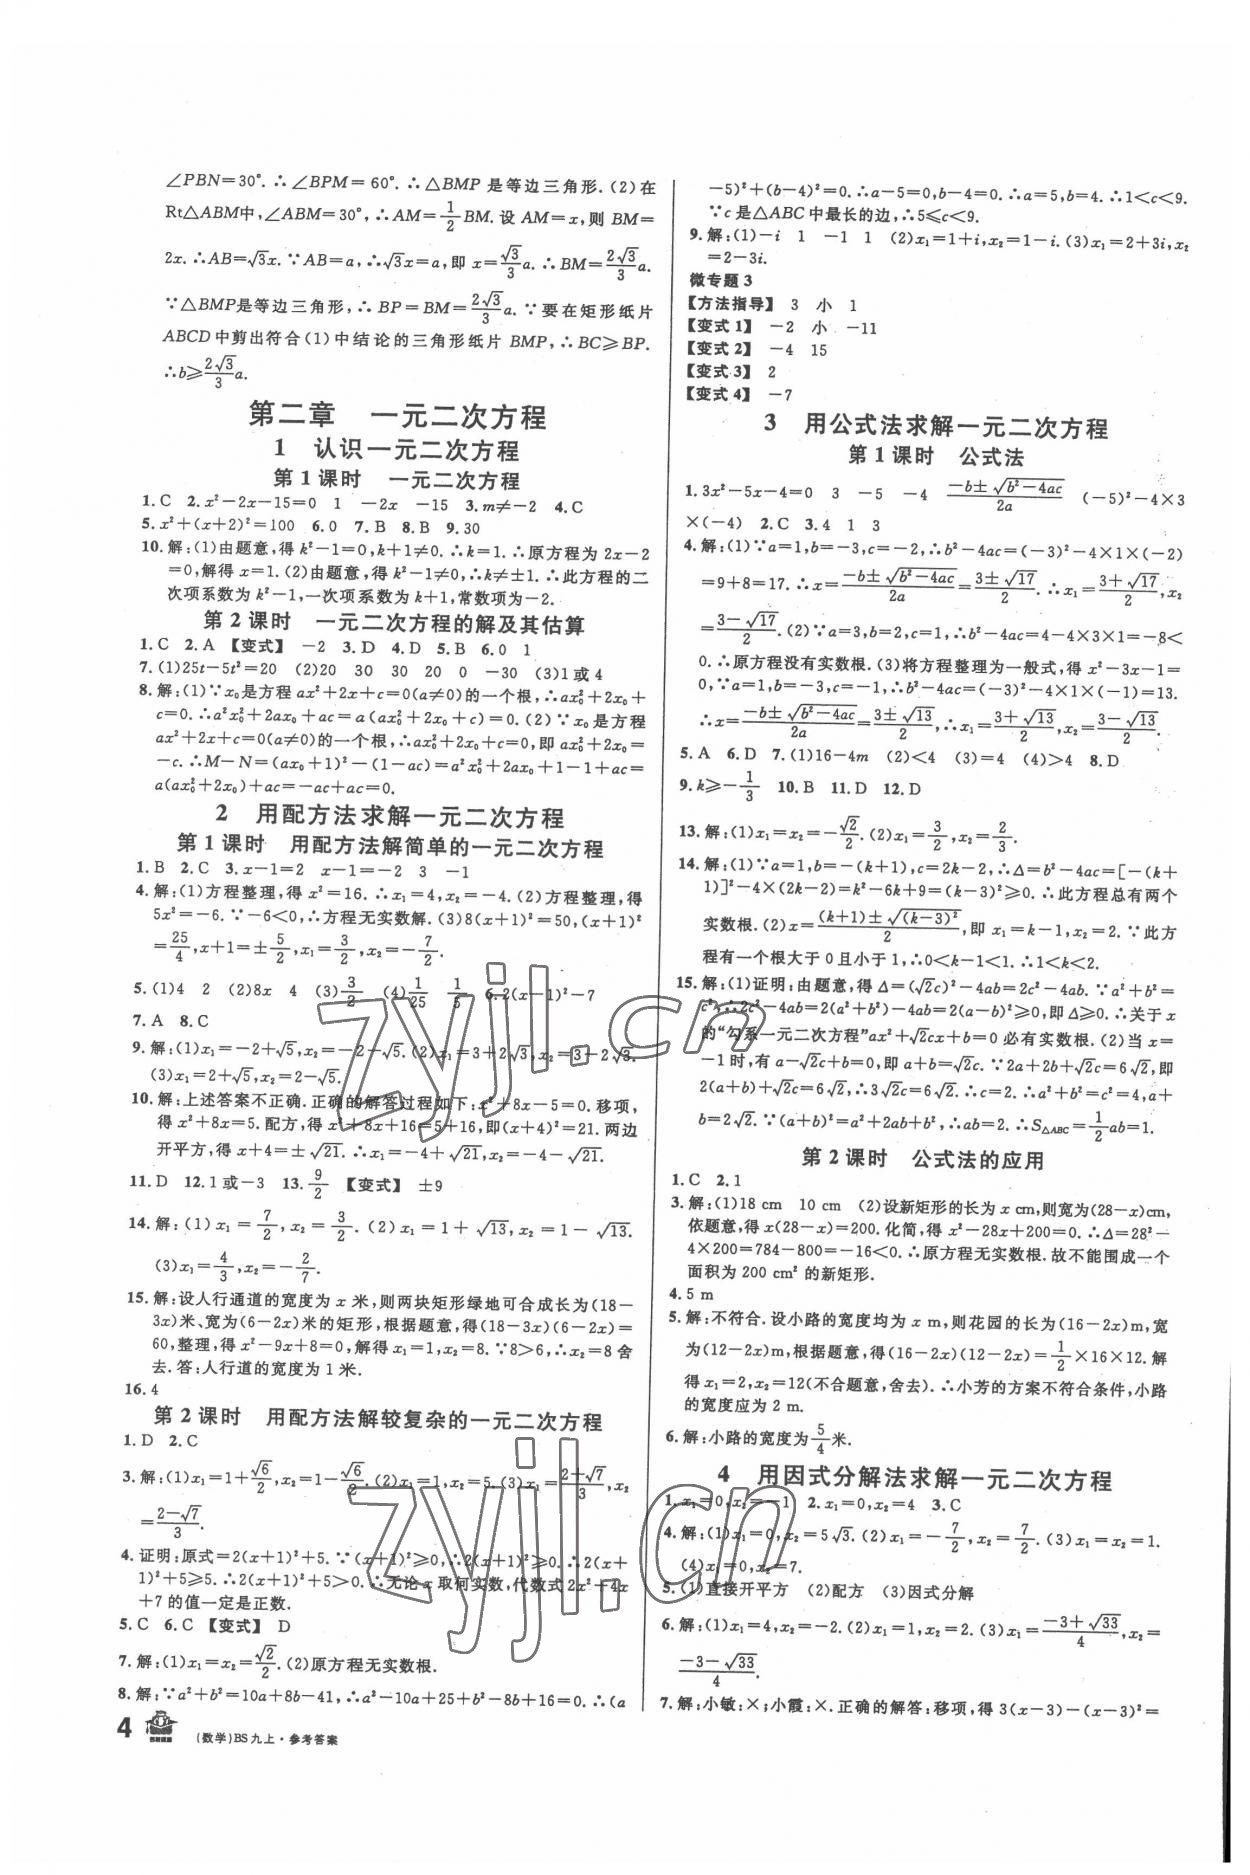 ∠PBN=30°.∴∠BPM=60°.∴△BMP 是等边三角形.(2)在
Rt△ABM中,∠ABM=30°,∴AM=1/2BM.设 AM=x,则 BM=
2x.∴AB=√3x.∵AB=a,∴√3x=a,即 x=√3/3a.∴BM=2√3/3a.
∵△BMP是等边三角形,∴BP=BM=2√3/3a.∵要在矩形纸片
ABCD中剪出符合(1)中结论的三角形纸片 BMP,∴BC≥BP.
∴b≥2√3/3a.
第二章 一元二次方程
1 认识一元二次方程
第1课时 一元二次方程
1.C 2.x²-2x-15=0 1 -2x -15 3.m≠-2 4.C
5.x²+(x+2)²=100 6.0 7.B 8.B 9.30
10.解:(1)由题意,得 k²-1=0,k+1≠0.∴k=1.∴原方程为 2x-2
=0,解得 x=1.(2)由题意,得 k²-1≠0,∴k≠±1.∴此方程的二
次项系数为 k²-1,一次项系数为 k+1,常数项为-2.
第2课时 一元二次方程的解及其估算
1.C 2.A 【变式】 -2 3.D 4.D 5.B 6.0 1
7.(1)25t-5t²=20 (2)20 30 30 20 0 -30 (3)1或4
8.解:(1)∵x₀是方程 ax²+2x+c=0(a≠0)的一个根,∴ax₀²+2x₀+
c=0.∴a²x₀²+2ax₀+ac=a(ax₀²+2x₀+c)=0.(2)∵x₀是方程
ax²+2x+c=0(a≠0)的一个根,∴ax₀²+2x₀+c=0,即 ax₀²+2x₀=
-c.∴M-N=(ax₀+1)²-(1-ac)=a²x₀²+2ax₀+1-1+ac=
a(ax₀²+2x₀)+ac=-ac+ac=0.
2 用配方法求解一元二次方程
第1课时 用配方法解简单的一元二次方程
1.B 2.C 3.x-1=2 x-1=-2 3 -1
4.解:(1)方程整理,得 x²=16.∴x₁=4,x₂=-4.(2)方程整理,得
5x²=-6.∵-6<0,∴方程无实数解.(3)8(x+1)²=50,(x+1)²
=25/4,x+1=±5/2,x₁=3/2,x₂=-7/2.
5.(1)4 2 (2)8x 4 (3)3/2 (4)1/25 1/5 6.2(x-1)²-7
7.A 8.C
9.解:(1)x₁=-2+√5,x₂=-2-√5.(2)x₁=3+2√3,x₂=3-2√3.
(3)x₁=2+√5,x₂=2-√5.
10.解:上述答案不正确.正确的解答过程如下:x²+8x-5=0.移项,
得 x²+8x=5.配方,得 x²+8x+16=5+16,即(x+4)²=21.两边
开平方,得 x+4=±√21.∴x₁=-4+√21,x₂=-4-√21.
11.D 12.1或-3 13.9/2 【变式】 ±9
14.解:(1)x₁=7/2,x₂=3/2.(2)x₁=1+√13,x₂=1-√13.
(3)x₁=4/3,x₂=-2/7.
15.解:设人行通道的宽度为 x 米,则两块矩形绿地可合成长为(18-
3x)米、宽为(6-2x)米的矩形,根据题意,得(18-3x)(6-2x)=
60,整理,得 x²-9x+8=0,解得 x₁=1,x₂=8.∵8>6,∴x₂=8舍
去.答:人行道的宽度为 1 米.
16.4
第2课时 用配方法解较复杂的一元二次方程
1.D 2.C
3.解:(1)x₁=1+√6/2,x₂=1-√6/2.(2)x₁=1,x₂=5.(3)x₁=2+√7/3,x₂
=2-√7/3.
4.证明:原式=2(x+1)²+5.∵(x+1)²≥0,∴2(x+1)²≥0.∴2(x+
1)²+5≥5.∴2(x+1)²+5>0.∴无论 x 取何实数,代数式 2x²+4x
+7 的值一定是正数.
5.C 6.C 【变式】 D
7.解:(1)x₁=x₂=√2/2.(2)原方程无实数根.
8.解:∵a²+b²=10a+8b-41,∴a²-10a+25+b²-8b+16=0.∴(a
4 (数学)BS九上·参考答案
-5)²+(b-4)²=0.∴a-5=0,b-4=0.∴a=5,b=4.∴1<c<9.
∵c 是△ABC 中最长的边,∴5≤c<9.
9.解:(1)-i 1 -1 1 (2)x₁=1+i,x₂=1-i.(3)x₁=2+3i,x₂
=2-3i.
微专题3
【方法指导】 3 小 1
【变式1】 -2 小 -11
【变式2】 -4 15
【变式3】 2
【变式4】 -7
3 用公式法求解一元二次方程
第1课时 公式法
1.3x²-5x-4=0 3 -5 -4 -b±√b²-4ac/2a (-5)²-4×3
×(-4) 2.C 3.4 1 3
4.解:(1)∵a=1,b=-3,c=-2,∴b²-4ac=(-3)²-4×1×(-2)
=9+8=17.∴x=-b±√b²-4ac/2a=3±√17/2.∴x₁=3+√17/2,x₂
=3-√17/2.(2)∵a=3,b=2,c=1,∴b²-4ac=4-4×3×1=-8<
0.∴原方程没有实数根.(3)将方程整理为一般式,得 x²-3x-1=
0.∵a=1,b=-3,c=-1,∴b²-4ac=(-3)²-4×1×(-1)=13.
∴x=-b±√b²-4ac/2a=3±√13/2,∴x₁=3+√13/2,x₂=3-√13/2.
5.A 6.D 7.(1)16-4m (2)<4 (3)=4 (4)>4 8.D
9.k≥-1/3 10.B 11.D 12.D
13.解:(1)x₁=x₂=-√2/2.(2)x₁=3/2,x₂=2/3.
14.解:(1)∵a=1,b=-(k+1),c=2k-2,∴Δ=b²-4ac=[-(k+
1)]²-4×(2k-2)=k²-6k+9=(k-3)²≥0.∴此方程总有两个
实数根.(2)x=(k+1)±√(k-3)²/2,即 x₁=k-1,x₂=2.∵此方
程有一个根大于 0 且小于 1,∴0<k-1<1.∴1<k<2.
15.解:(1)证明:由题意,得 Δ=(√2c)²-4ab=2c²-4ab.∵a²+b²=
c²,∴2c²-4ab=2(a²+b²)-4ab=2(a-b)²≥0,即Δ≥0.∴关于 x
的"勾系一元二次方程"ax²+√2cx+b=0 必有实数根.(2)当 x=
-1时,有 a-√2c+b=0,即 a+b=√2c.∵2a+2b+√2c=6√2,即
2(a+b)+√2c=6√2,∴3√2c=6√2.∴c=2.∴a²+b²=c²=4,a+
b=2√2.∵(a+b)²=a²+2ab+b²,∴ab=2.∴S△ABC=1/2ab=1.
第2课时 公式法的应用
1.C 2.1
3.解:(1)18 cm 10 cm (2)设新矩形的长为 x cm,则宽为(28-x)cm,
依题意,得 x(28-x)=200.化简,得 x²-28x+200=0.∴Δ=28²-
4×200=784-800=-16<0.∴原方程无实数根.故不能围成一个
面积为 200 cm² 的新矩形.
4.5 m
5.解:不符合.设小路的宽度均为 x m,则花园的长为(16-2x)m,宽
为(12-2x)m,根据题意,得(16-2x)(12-2x)=1/2×16×12.解
得 x₁=2,x₂=12(不合题意,舍去).∴小芳的方案不符合条件,小路
的宽度应为 2 m.
6.解:小路的宽度为5/4米.
4 用因式分解法求解一元二次方程
1.x₁=0,x₂=-1 2.x₁=0,x₂=4 3.C
4.解:(1)x₁=0,x₂=5√3.(2)x₁=-7/2,x₂=7/2.(3)x₁=x₂=1.
(4)x₁=0,x₂=7.
5.(1)直接开平方 (2)配方 (3)因式分解
6.解:(1)x₁=4,x₂=-2.(2)x₁=1,x₂=2.(3)x₁=-3+√33/4,x₂=
-3-√33/4.
7.解:小敏:×;小霞:×.正确的解答:移项,得 3(x-3)-(x-3)²=
zyjl.cn
zyjl.cn